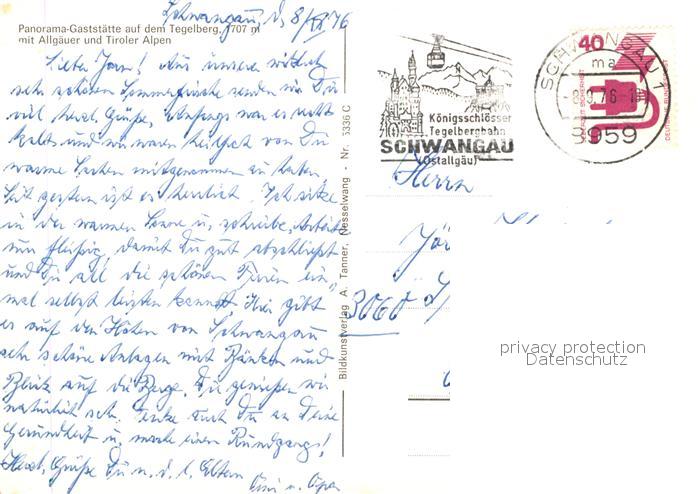 Schwangau, d. 8/IX 76
Panorama-Gaststätte auf dem Tegelberg, 1707 m
mit Allgäuer und Tiroler Alpen
Lieber Jörn! Aus unserer wirklich
sehr schönen Sommerfrische senden wir Dir
viel herzl. Grüße, anfangs war es recht
kalt und wir waren heilfroh von Dir
warme Sachen mitgenommen zu haben.
Seit gestern ist es herrlich. Ich sitze
in der warmen Sonne u. schreibe. Arbeite
nun fleißig, damit Du gut abschließt
und Du all die schönen Ferien ein-
mal selbst leisten kannst. Hier gibt
es auf den Höhen von Schwangau
sehr schöne Anlagen mit Bänken und
Blick auf die Berge. Die genießen wir
natürlich sehr. Denke auch Du an Deine
Gesundheit u. mache einen Rundgang!
Herzl. Grüße Dir u. d. l. Eltern
Omi u. Opa
Bildkunstverlag A. Tanner, Nesselwang - Nr. 3336 C
Königsschlösser
Tegelbergbahn
SCHWANGAU
(Ostallgäu)
SCHWANGAU 1
ma
8959
40
DEUTSCHE BUNDESPOST
Herrn
Jör
3060
privacy protection
Datenschutz